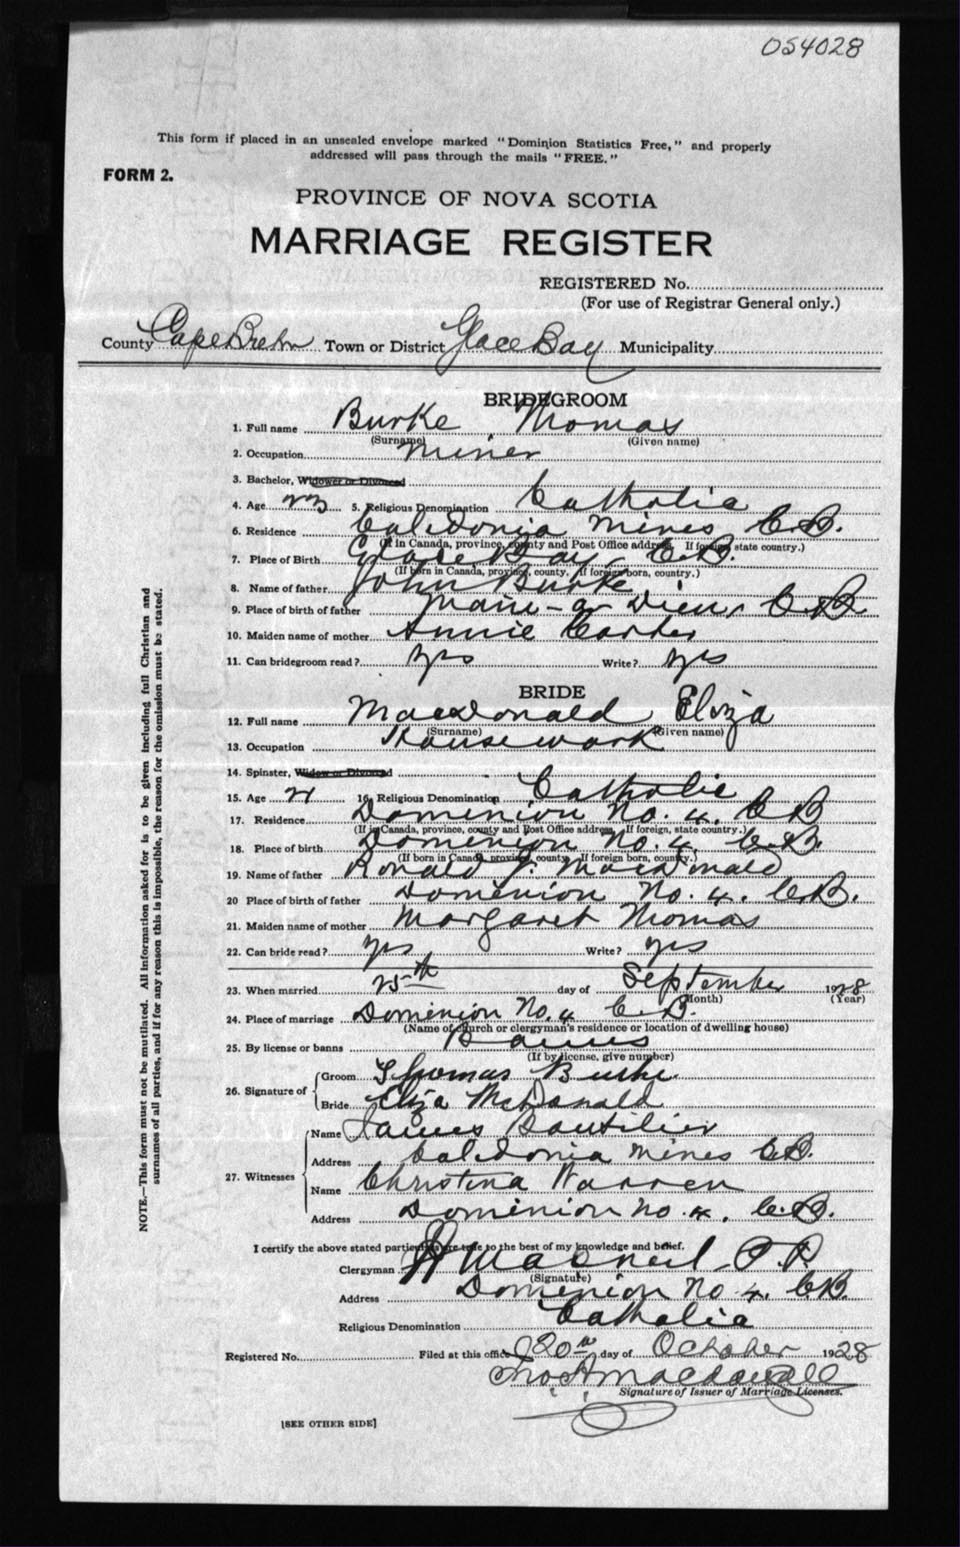 054028
This form if placed in an unsealed envelope marked "Dominion Statistics Free," and properly
addressed will pass through the mails "FREE."
FORM 2.
PROVINCE OF NOVA SCOTIA
MARRIAGE REGISTER
REGISTERED No.
(For use of Registrar General only.)
County Cape Breton Town or District Glace Bay Municipality
BRIDEGROOM
1. Full name Burke Thomas
(Surname) (Given name)
2. Occupation Miner
3. Bachelor, Widower or Divorced
4. Age 23 5. Religious Denomination Catholic
6. Residence Caledonia Mines C.B.
(If in Canada, province, county and Post Office address, If foreign, state country.)
7. Place of Birth Glace Bay, C.B.
(If born in Canada, province, county, If foreign born, country.)
8. Name of father John Burke
9. Place of birth of father Main-a-Dieu, C.B.
10. Maiden name of mother Annie
11. Can bridegroom read? yes Write? yes
BRIDE
12. Full name MacDonald Eliza
(Surname) (Given name)
13. Occupation Housework
14. Spinster, Widow or Divorced
15. Age 21 16. Religious Denomination Catholic
17. Residence Dominion No. 4. C.B.
(If in Canada, province, county and Post Office address, If foreign, state country.)
18. Place of birth Dominion No. 4. C.B.
(If born in Canada, province, county, If foreign born, country.)
19. Name of father Ronald J. MacDonald
20 Place of birth of father Dominion No. 4. C.B.
21. Maiden name of mother Margaret Thomas
22. Can bride read? yes Write? yes
23. When married 25th day of September 1928
(Month) (Year)
24. Place of marriage Dominion No. 4 C.B.
(Name of church or clergyman's residence or location of dwelling house)
25. By license or banns Banns
(If by license, give number)
26. Signature of
Groom Thomas Burke
Bride Eliza McDonald
27. Witnesses
Name James Boutilier
Address Caledonia Mines C.B.
Name Christina Warren
Address Dominion No. 4, C.B.
I certify the above stated particulars are true to the best of my knowledge and belief.
Clergyman MacNeil P.P.
(Signature)
Address Dominion No 4. C.B.
Religious Denomination Catholic
Registered No. Filed at this office 20th day of October 1928
Jno. A. Macdougall
Signature of Issuer of Marriage Licenses.
[SEE OTHER SIDE]
NOTE.—This form must not be mutilated. All information asked for is to be given including full Christian and
surnames of all parties, and if for any reason this is impossible, the reason for the omission must be stated.